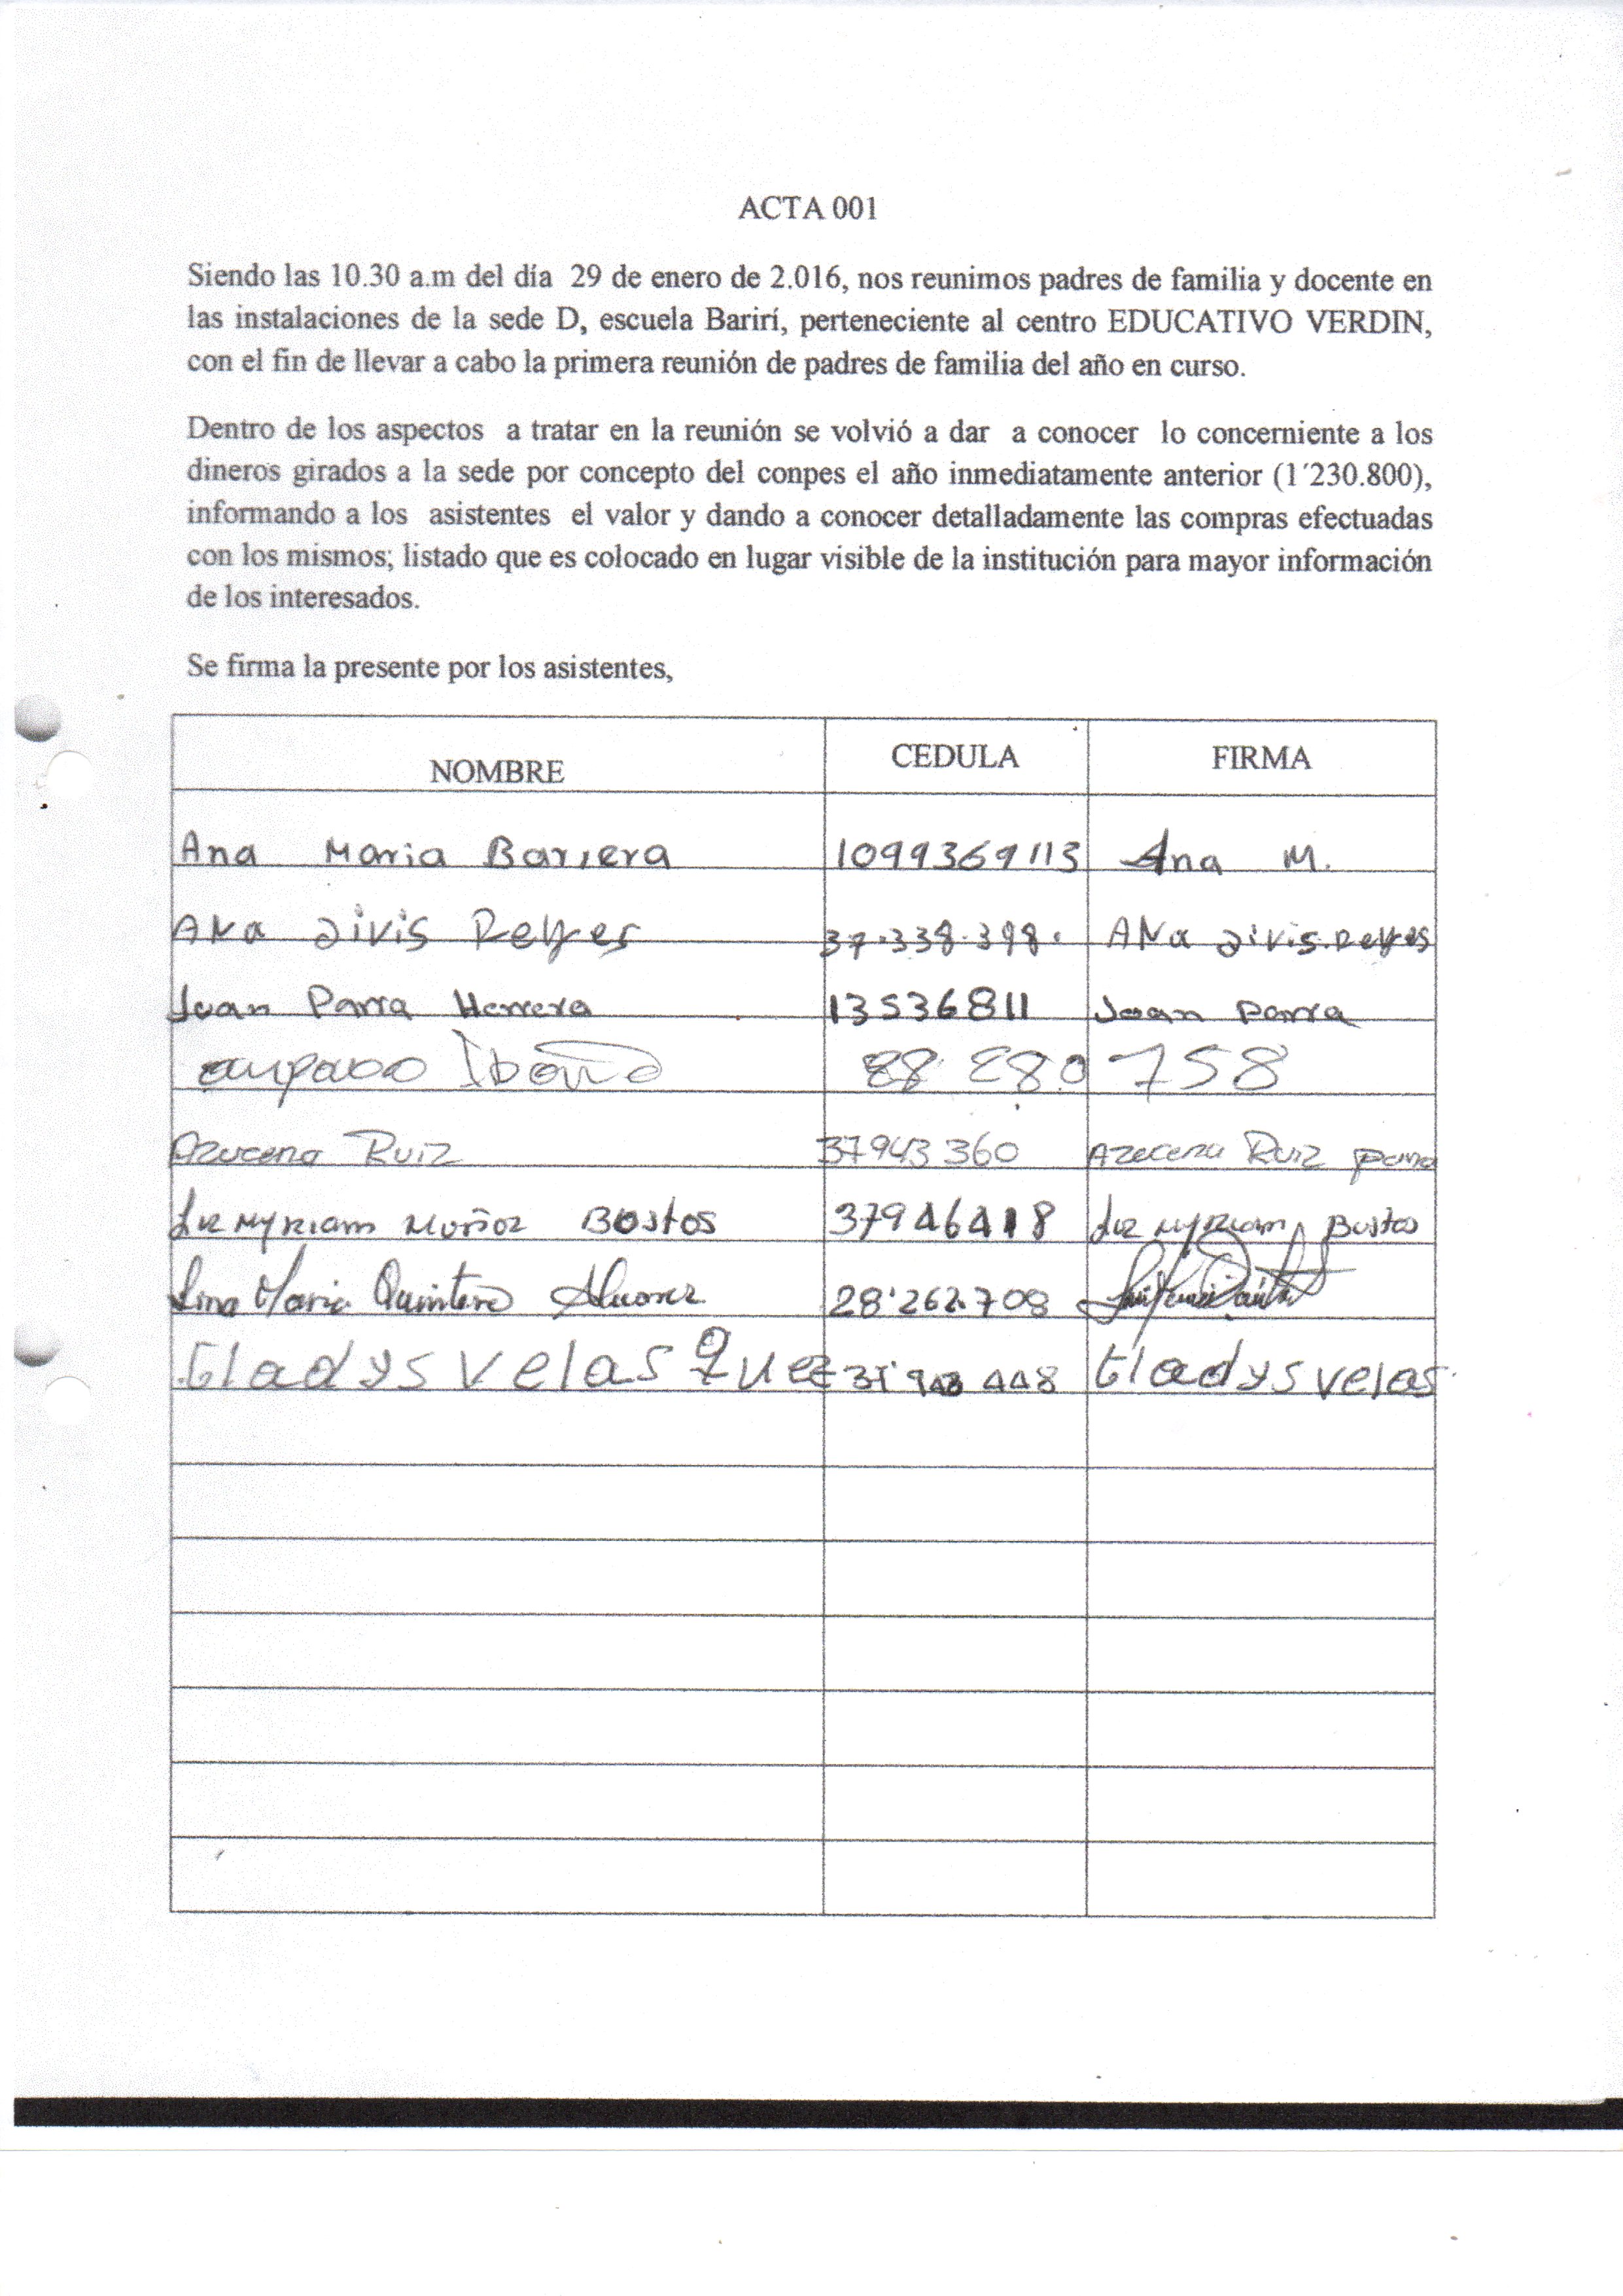 ACTA 001
Siendo las 10.30 a.m del día 29 de enero de 2.016, nos reunimos padres de familia y docente en
las instalaciones de la sede D, escuela Barirí, perteneciente al centro EDUCATIVO VERDIN,
con el fin de llevar a cabo la primera reunión de padres de familia del año en curso.
Dentro de los aspectos a tratar en la reunión se volvió a dar a conocer lo concerniente a los
dineros girados a la sede por concepto del conpes el año inmediatamente anterior (1´230.800),
informando a los asistentes el valor y dando a conocer detalladamente las compras efectuadas
con los mismos; listado que es colocado en lugar visible de la institución para mayor información
de los interesados.
Se firma la presente por los asistentes,
NOMBRE CEDULA FIRMA
Ana Maria Barrera 1099369113 Ana M.
ANa Divis Reyes 37.338.398. ANa Divis.Reyes
Juan Parra Herrera 13536811 Juan Parra
amparo 28 280 758
Azucena Ruiz 37943360 Azucena Ruiz parra
Luz Myriam Muñoz Bustos 37946418 Luz Myriam Bustos
Lina Maria Quintero Alvarez 28'262.708
Gladys velasquez 448 Gladys velas